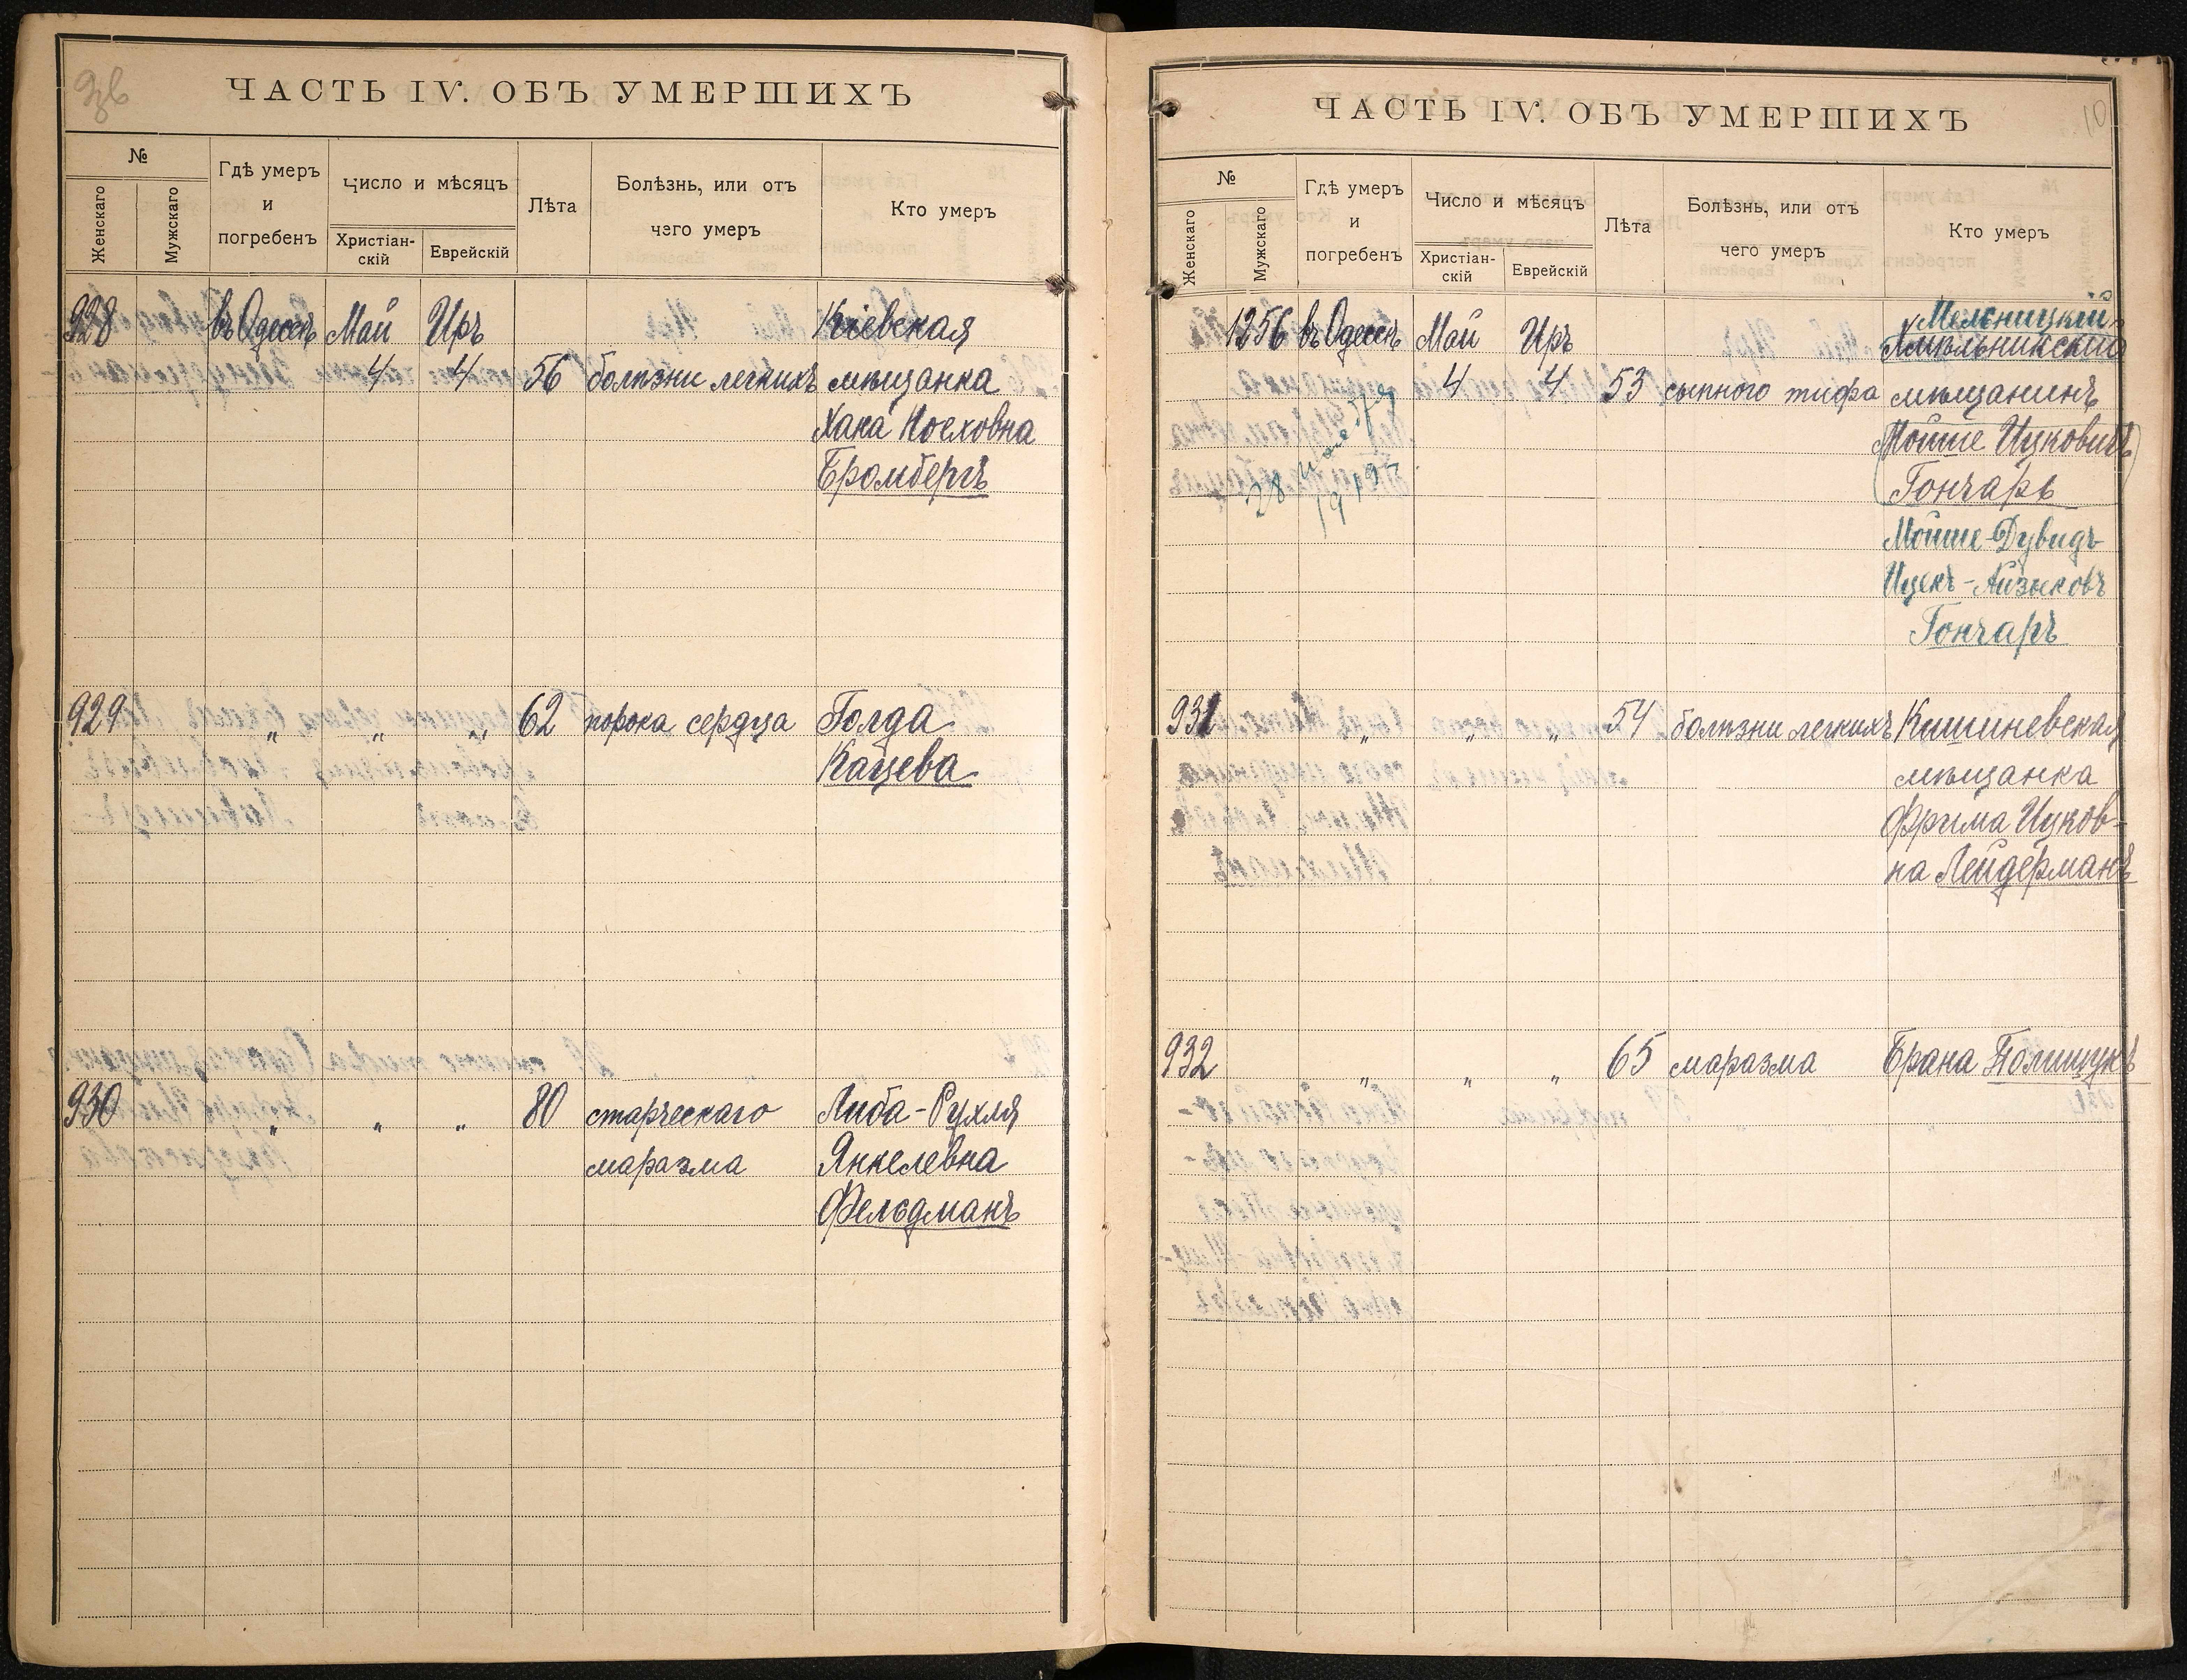 ЧАСТЬ IV. ОБЪ УМЕРШИХЪ
№
Женскаго
Мужскаго
Гдѣ умеръ
и
погребенъ
Число и мѣсяцъ
Христіан-
скій
Еврейскій
Лѣта
Болѣзнь, или отъ
чего умеръ
Кто умеръ
928 въ Одессѣ Май Иръ Кіевская
4 4 56 болѣзни легкихъ мѣщанка
Хана Іосховна
Бромбергъ
929 " " " 62 порока сердца Голда
Кацева
930 " " " 80 старческаго Либа-Рухля
маразма Янкелевна
Фельдманъ
ЧАСТЬ IV. ОБЪ УМЕРШИХЪ
10
№
Женскаго
Мужскаго
Гдѣ умеръ
и
погребенъ
Число и мѣсяцъ
Христіан-
скій
Еврейскій
Лѣта
Болѣзнь, или отъ
чего умеръ
Кто умеръ
Мельницкій
1256 въ Одессѣ Май Иръ Хмѣльникскій
4 4 53 сыпного тифа мѣщанинъ
(Мойше Ицковичъ
Гончаръ)
28
Мойше-Дувидъ
Ицекъ-Айзыковъ
Гончаръ
931 " " " 54 болѣзни легкихъ Кишиневская
мѣщанка
Фрима Ицков-
на Лейдерманъ
932 " " " 65 маразма Брана Полищукъ